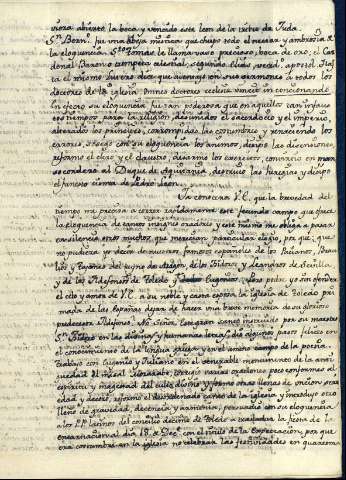 viera abierto la boca y vomitado este leon de la tribu de Juda.
Sn. Bern.º fue una abeja mistica que chupo todo el nectar y ambrosia de
la eloquencia. Sto. Tomás le llama vaso precioso, boca de oro; el Car
denal Baronio trompeta celestial, segundo Elias, verd.º apostol.
el mismo Lutero dice que aventajo en sus sermones a todos los
doctores de la iglesia omnes doctores ecclesiæ vincit in concionando
En efecto su eloquencia fue tan poderosa que en aquellos tan infaus
tos tiempos para la religion, desunidos el sacerdocio y el imperio,
alterados los principes, corrompidas las costumbres y renaciendo los
errores, sosego con su eloquencia los animos, disipo las disensiones,
reformo el clero y el claustro, desarmo los exercitos, convirtio en man
so cordero al Duque de Aquitania, destruyo las heregias y disipo
el funesto cisma de Pedro Leon.
Ya conocera V.C. que la brevedad del
tiempo me precisa a correr rapidamente este fecundo campo que ofrece
la eloquencia de eminentes oradores y esto mismo me obliga a pasar
en silencio otros muchos que merecian particular elogio, por que ¿que
no pudiera yo decir de nuestros famosos españoles de los Pacianos, Brau
lios y Tajones del reyno de Aragon, de los Isidoros y Leandros de Sevilla,
y de los Ildefonsos de Toledo y Eugenios. Pero podre yo sin ofender
el celo y amor de V.C. a su noble y casta esposa la Iglesia de Toledo pri
mada de las Españas dejar de hacer una breve memoria de su glorioso
predecesor Ildefonso. No Señor.
en las divinas y humanas letras, dio algunos pasos felices en
el conocimiento de la lengua
trabajo con Eugenio y Juliano en el venerable monumento de la anti
guedad el misal Mozarabe, corrigio varias oraciones poco conformes al
espiritu y magestad del culto divino y formo otras llenas de uncion,
y acierto, reformo el desordenado canto de la iglesia y introdujo otro
lleno de gravedad, decencia y armonia, persuadio con su eloquencia
a los P.P. latinos del concilio decimo de Toledo a trasladar la fiesta de la
encarnacion al dia 18 de Dec.e con el titulo de la Expectacion, por que
era costumbre en la iglesia no celebrar las festividades en quaresma